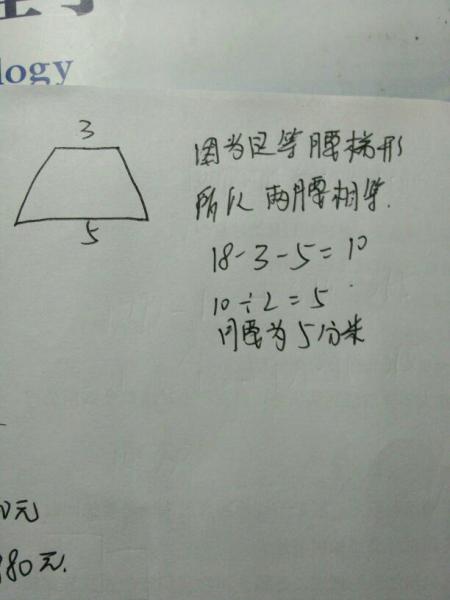 logy
3
5
因当是等腰梯形
所以两腰相等.
18-3-5=10
10÷2=5
腰为5分米
0元
80元.